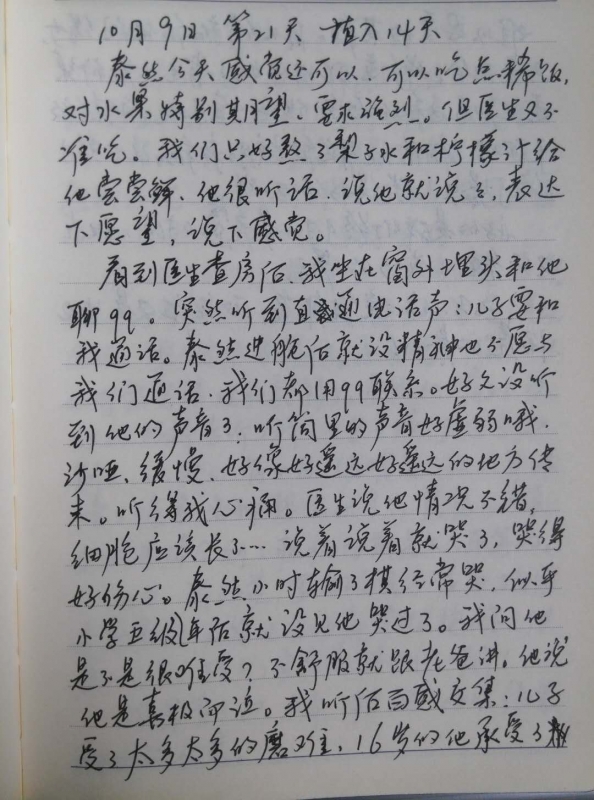 10月9日 第21天 植入14天
泰然今天感觉还可以,可以吃点稀饭,
对水果特别期望、要求强烈。但医生又不
准吃。我们只好熬了梨子水和柠檬汁给
他尝尝鲜、他很听话、说他就说了,表达
下愿望,说下感觉。
看到医生查房后、我坐在窗外埋头和他
聊qq。突然听到直通电话声:儿子要和
我通话。泰然进舱后就没精神也不愿与
我们通话、我们都用qq联系。好久没听
到他的声音了;听筒里的声音好虚弱哦、
沙哑、缓慢、好像好遥远好遥远的地方传
来。听得我心痛。医生说他情况不错,
细胞应该长了… 说着说着就哭了,哭得
好伤心。泰然小时输了棋经常哭,似乎
小学五级年后就没见他哭过了。我问他
是不是很难受?不舒服就跟老爸讲。他说
他是喜极而泣。我听后百感交集:儿子
受了太多太多的磨难、16岁的他承受了